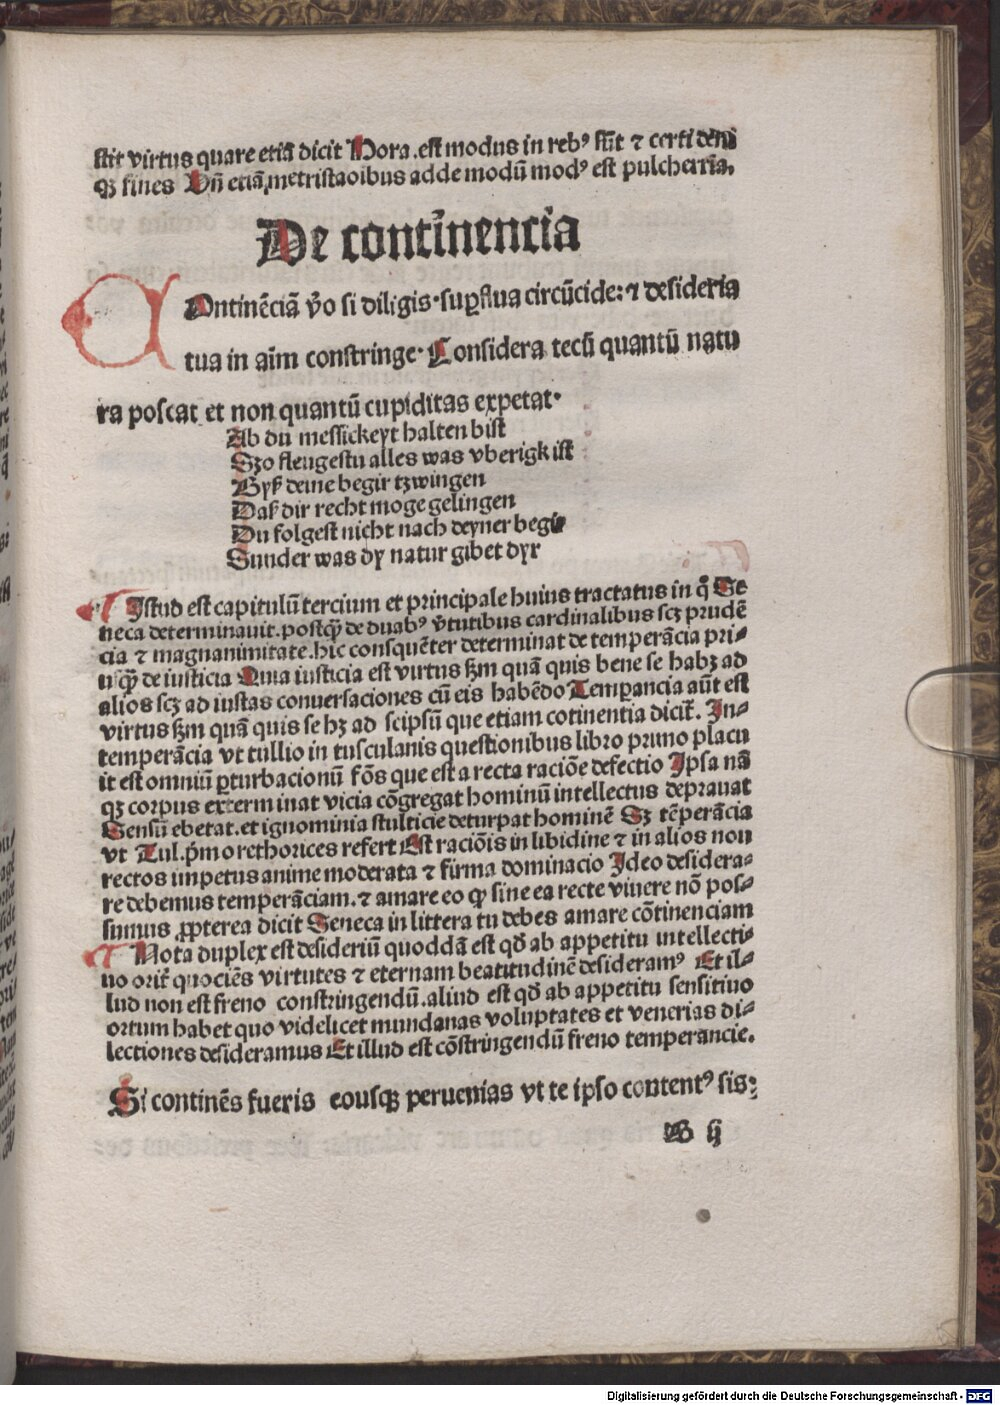 stit virtus quare etiā dicit Hora. est modus in reb⁹ sūt ⁊ certi deni
qꝫ fines Vn̄ etiā metristaoibus adde modū mod⁹ est pulcherria.
De contīnencīa
Ontinēciā v̊o si diligis·suꝑflua circūcide: ⁊ desideria
tua in aīm constringe· Considera tecū quantū natu
ra poscat et non quantū cupiditas expetat·
Ab du messickeyt halten bist
Szo fleugestu alles was vberigk ist
Byß deine begir tzwingen
Daß dir recht moge gelingen
Du folgest nicht nach deyner begir
Sunder was dy natur gibet dyr
Istud est capitulū tercium et principale huius tractatus in q̄ Se
neca determinauit. postqꝫ de duab⁹ v̊tutibus cardinalibus scꝫ prudē
cia ⁊ magnanimitate. hic consquēter determinat de temperācia pri⸗
usqꝫ de iusticia Quia iusticia est virtus scꝫm quā quis bene se habꝫ ad
alios scꝫ ad iustas conuersaciones cū eis habēdo Temꝑancia aūt est
virtus scꝫm quā quis se hꝫ ad seipsū que etiam cotinentia dicit̄. In⸗
temperācia vt tullio in tusculanis questionibus libro primo placu
it est omniū ꝑturbacionū fōs que est a recta raciōe defectio Ipsa nā
qꝫ corpus exterminat vicia cōgregat hominū intellectus deprauat
Sensū ebetat. et ignominia stulticie deturpat hominē Sꝫ tēperācia
vt Tul. p̄mo rethorices refert Est raciōis in libidine ⁊ in alios non
rectos impetus anime moderata ⁊ firma dominacio Ideo desidera⸗
re debemus temperāciam. ⁊ amare eo qꝫ sine ea recte viuere nō pos⸗
sumus ꝓpterea dicit Seneca in littera tu debes amare cōtinenciam
Nota duplex est desideriū quoddā est qđ ab appetitu intellecti⸗
uo orit̄ quociēs virtutes ⁊ eternam beatitudinē desideram⁹ Et il⸗
lud non est freno constringendū. aliud est qđ ab appetitu sensitiuo
ortum habet quo videlicet mundanas voluptates et venerias di⸗
lectiones desideramus Et illud est cōstringendū freno temperancie.
Si continēs fueris eousqꝫ peruenias vt te ipso content⁹ sis:
B ij
Digitalisierung gefördert durch die Deutsche Forschungsgemeinschaft - DFG